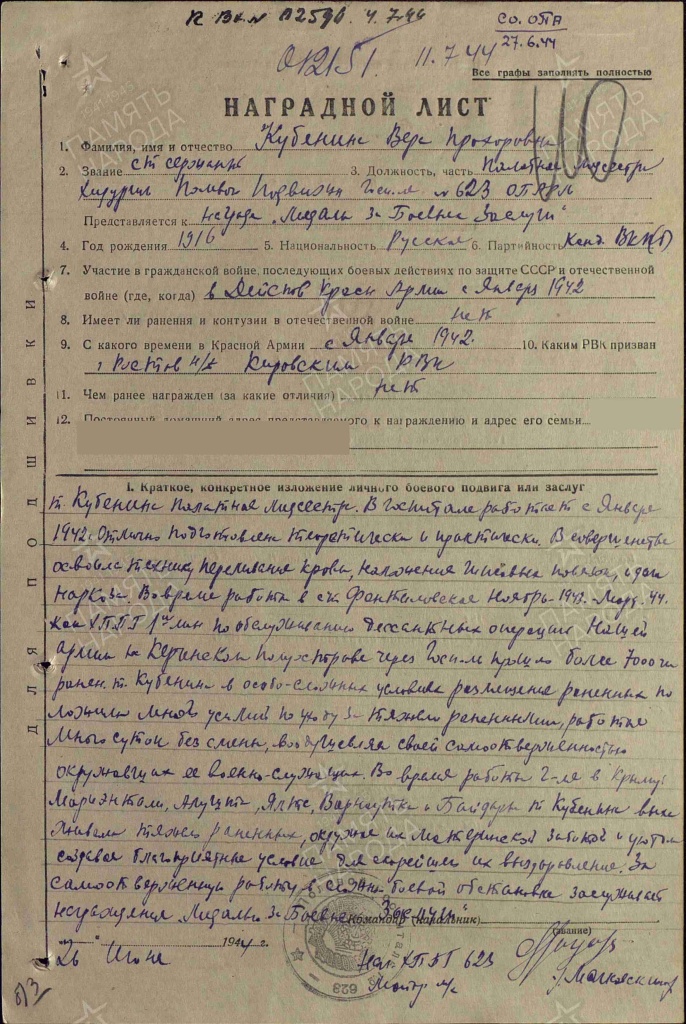 к Вх.№ 02596 4.7.44
СО.ОПА
27.6.44
01215/. 11.7.44
Все графы заполнять полностью
НАГРАДНОЙ ЛИСТ
1. Фамилия, имя и отчество Кубенина Вера Прохоровна
2. Звание ст сержант 3. Должность, часть Палатная медсестра
Хирургич Полевой Подвижн Госпиталь №623 ОТ АРМ
Представляется к награде „Медаль За Боевые Заслуги“
4. Год рождения 1916 5. Национальность Русская 6. Партийность Канд. ВКП(б)
7. Участие в гражданской войне, последующих боевых действиях по защите СССР и отечественной
войне (где, когда) в Действ Красн Армии с Января 1942
8. Имеет ли ранения и контузии в отечественной войне нет
9. С какого времени в Красной Армии с Января 1942. 10. Каким РВК призван
г Ростов н/д Кировским РВК
11. Чем ранее награжден (за какие отличия) нет
12. Постоянный домашний адрес представляемого к награждению и адрес его семьи
1. Краткое, конкретное изложение личного боевого подвига или заслуг
т. Кубенина палатная медсестра. В госпитале работает с Января
1942. Отлично подготовлена теоретически и практически. В совершенстве
освоила технику переливания крови, наложения гипсовых повязок, и дачи
наркоза. Во время работы в ст. Фонталовская Ноябрь-1943-Март 44.
как ХППГ 1ой лин по обслуживанию десантных операций Нашей
армии на Керченском полуострове через Госпиталь прошло более 7000 чел
ранен. т. Кубенина в особо-сложных условиях размещения раненных по
ложила много усилий по уходу за тяжело раненными, работая
много суток без смены, воодушевляя своей самоотверженностью
окружавших ее военно-служащих. Во время работы г-ля в Крыму
Мариэнтали, Алушта, Ялте, Варнаутка и Байдары т Кубенина выха
живала тяжело раненных, окружая их материнской заботой и уютом
создавая благоприятные условия для скорейшего их выздоровления. За
самоотверженную работу в сложно-боевой обстановке заслуживает
награждения Медалью За Боевые Заслуги“
Командир (начальник)
(звание)
„26“ Июня 1944 г.
Нач. ХППГ 623
Майор м/с
ДЛЯ ПОДШИВКИ
623
ПАМЯТЬ НАРОДА